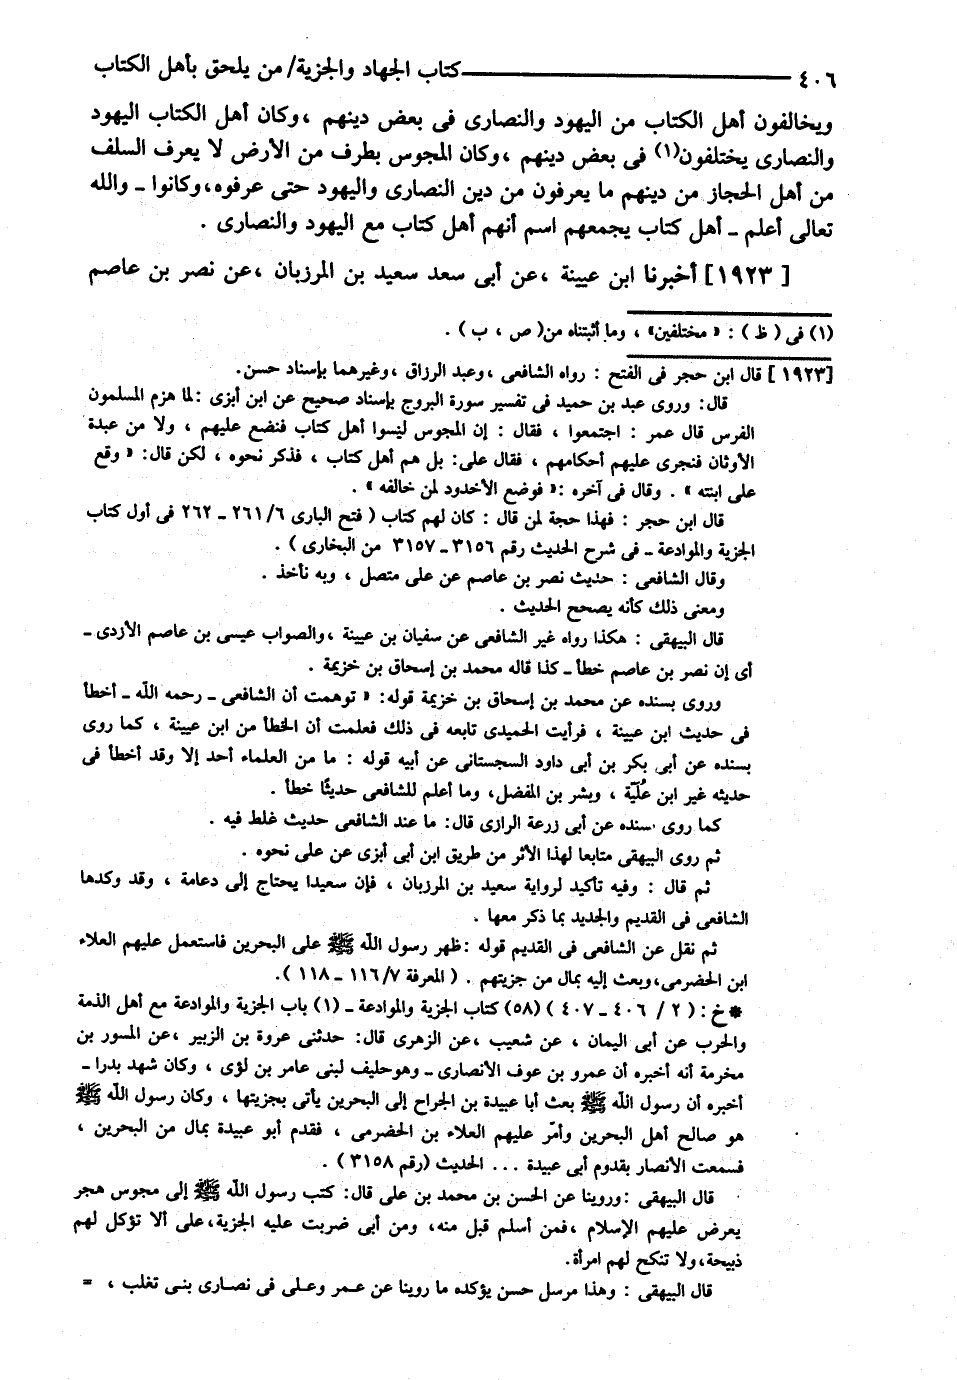 ٤٠٦ ـــــــــــــــــــــ كتاب الجهاد والجزية/ من يلحق بأهل الكتاب
ويخالفون أهل الكتاب من اليهود والنصارى فى بعض دينهم ، وكان أهل الكتاب اليهود
والنصارى يختلفون(١) فى بعض دينهم ، وكان المجوس بطرف من الأرض لا يعرف السلف
من أهل الحجاز من دينهم ما يعرفون من دين النصارى واليهود حتى عرفوه، وكانوا ـ والله
تعالى أعلم ـ أهل كتاب يجمعهم اسم أنهم أهل كتاب مع اليهود والنصارى .
[ ١٩٢٣] أخبرنا ابن عيينة ، عن أبى سعد سعيد بن المرزبان ، عن نصر بن عاصم
(١) فى ( ظ ) : « مختلفين» ، وما أثبتناه من( ص ، ب ) .
[١٩٢٣] قال ابن حجر فى الفتح : رواه الشافعى ، وعبد الرزاق ، وغيرهما بإسناد حسن.
قال: وروى عبد بن حميد فى تفسير سورة البروج بإسناد صحيح عن ابن أبزى : لما هزم المسلمون
الفرس قال عمر : اجتمعوا ، فقال : إن المجوس ليسوا أهل كتاب فنضع عليهم ، ولا من عبدة
الأوثان فنجرى عليهم أحكامهم ، فقال على: بل هم أهل كتاب ، فذكر نحوه ، لكن قال: « وقع
على ابنته » . وقال فى آخره :« فوضع الأخدود لمن خالفه » .
قال ابن حجر : فهذا حجة لمن قال : كان لهم كتاب ( فتح البارى ٢٦١/٦ ـ ٢٦٢ فى أول كتاب
الجزية والموادعة ـ فى شرح الحديث رقم ٣١٥٦ـ ٣١٥٧ من البخارى ) .
وقال الشافعى : حديث نصر بن عاصم عن على متصل ، وبه نأخذ .
ومعنى ذلك كأنه يصحح الحديث .
قال البيهقى : هكذا رواه غير الشافعى عن سفيان بن عيينة ، والصواب عيسى بن عاصم الأزدى ـ
أى إن نصر بن عاصم خطأ ـ كذا قاله محمد بن إسحاق بن خزيمة .
وروى بسنده عن محمد بن إسحاق بن خزيمة قوله: « توهمت أن الشافعى ـ رحمه الله ـ أخطأ
فى حديث ابن عيينة ، فرأيت الحميدى تابعه فى ذلك فعلمت أن الخطأ من ابن عيينة ، كما روى
بسنده عن أبى بكر بن أبى داود السجستانى عن أبيه قوله : ما من العلماء أحد إلا وقد أخطأ فى
حديثه غير ابن عُلَيّة ، وبشر بن المفضل، وما أعلم للشافعى حديثًا خطأ .
كما روى بسنده عن أبى زرعة الرازى قال: ما عند الشافعى حديث غلط فيه .
ثم روى البيهقى متابعا لهذا الأثر من طريق ابن أبى أبزى عن على نحوه .
ثم قال : وفيه تأكيد لرواية سعيد بن المرزبان ، فإن سعيدا يحتاج إلى دعامة ، وقد وكدها
الشافعى فى القديم والجديد بما ذكر معها .
ثم نقل عن الشافعى فى القديم قوله :ظهر رسول الله ﷺ على البحرين فاستعمل عليهم العلاء
ابن الحضرمى، وبعث إليه بمال من جزيتهم . ( المعرفة ١١٦/٧ ـ ١١٨ ).
* خ : ( ٢ / ٤٠٦ ـ ٤٠٧ ) (٥٨) كتاب الجزية والموادعة ـ (١) باب الجزية والموادعة مع أهل الذمة
والحرب عن أبى اليمان ، عن شعيب ، عن الزهرى قال: حدثنى عروة بن الزبير ، عن المسور بن
مخرمة أنه أخبره أن عمرو بن عوف الأنصارى ـ وهوحليف لبنى عامر بن لؤى ، وكان شهد بدرا ـ
أخبره أن رسول الله ﷺ بعث أبا عبيدة بن الجراح إلى البحرين يأتى بجزيتها ، وكان رسول الله ﷺ
هو صالح أهل البحرين وأمّر عليهم العلاء بن الحضرمى ، فقدم أبو عبيدة بمال من البحرين ،
فسمعت الأنصار بقدوم أبى عبيدة ... الحديث (رقم ٣١٥٨ ) .
قال البيهقى : وروينا عن الحسن بن محمد بن على قال: كتب رسول الله ﷺ إلى مجوس هجر
يعرض عليهم الإسلام ، فمن أسلم قبل منه، ومن أبى ضربت عليه الجزية، على ألا تؤكل لهم
ذبيحة، ولا تنكح لهم امرأة.
قال البيهقى : وهذا مرسل حسن يؤكده ما روينا عن عمر وعلى فى نصارى بنى تغلب ، =